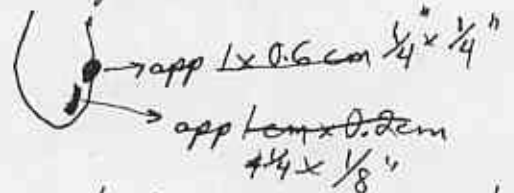 app 1 x 0.6 cm 1/4" x 1/4"
app 1cm x 0.2cm
1/4 x 1/8"